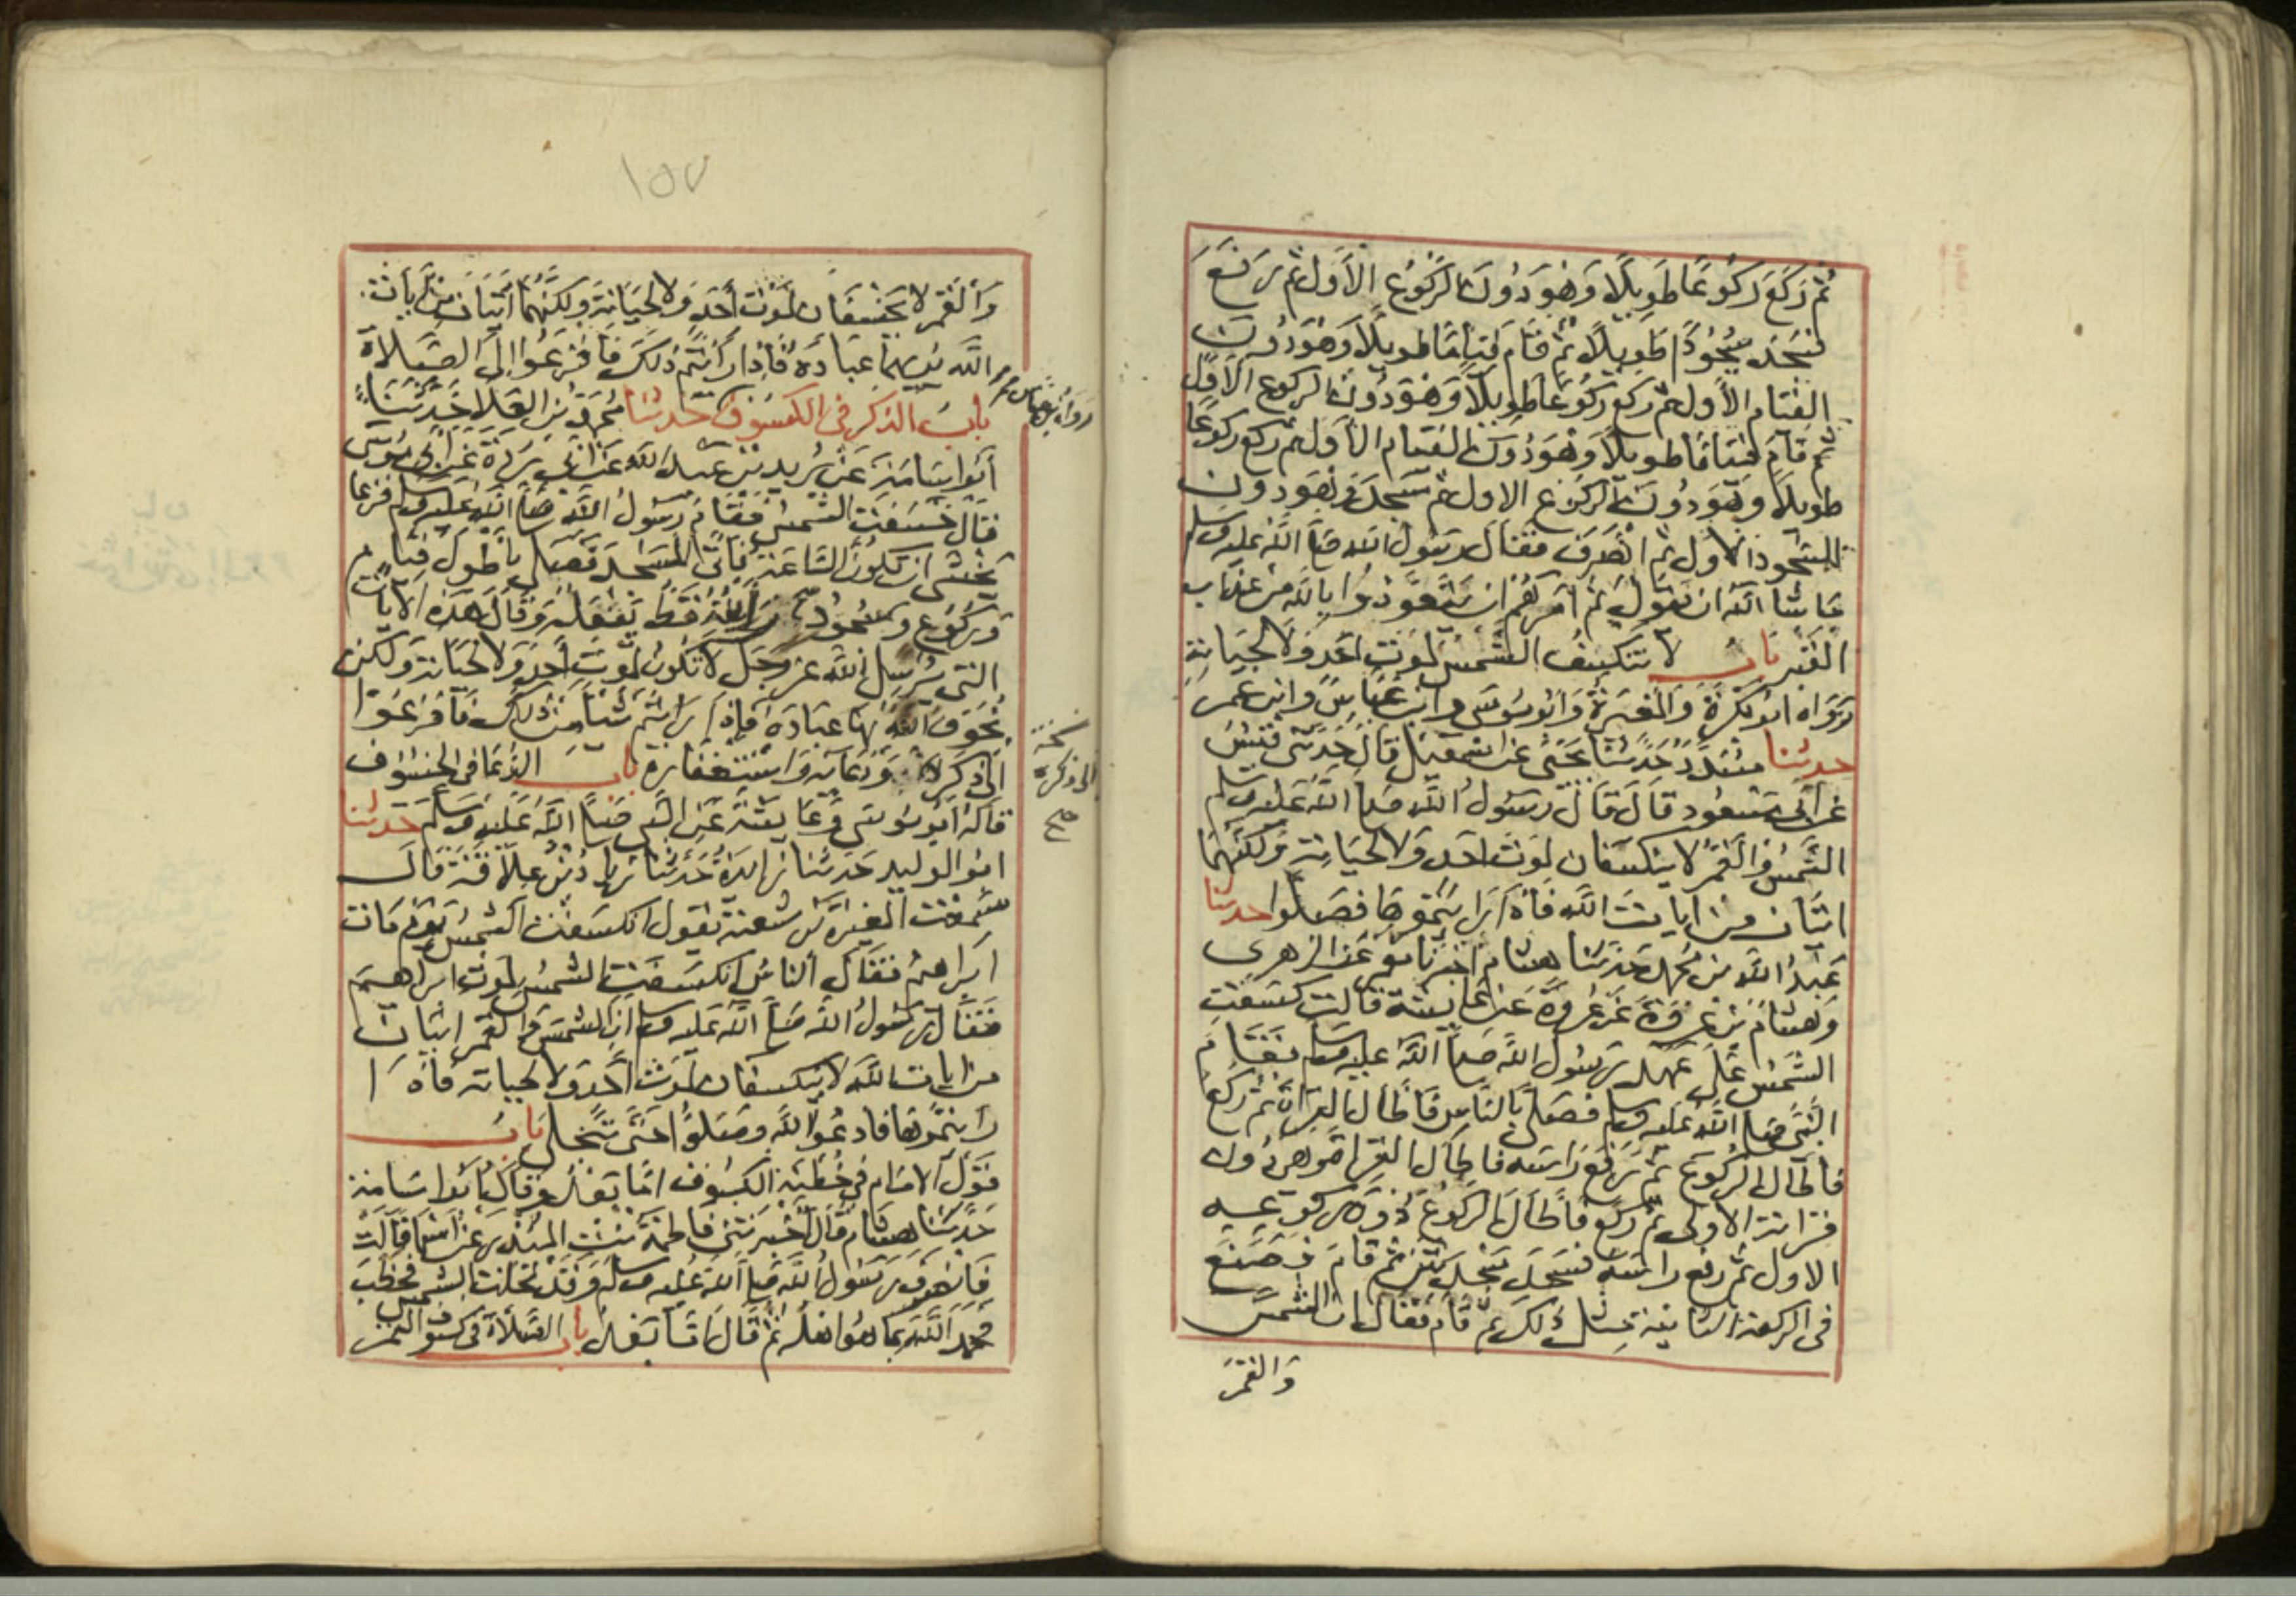 ثم ركع ركوعا طويلا وهو دون الركوع الاول ثم رفع
فسجد سجودا طويلا ثم قام قياما طويلا وهو دون
القيام الاول ثم ركع ركوعا طويلا وهو دون الركوع الاول
ثم قام قياما طويلا وهو دون القيام الاول ثم ركع ركوعا
طويلا وهو دون الركوع الاول ثم سجد وهو دون
السجود الاول ثم انصرف فقال رسول الله صلى الله عليه وسلم
ما شا الله ان يقول ثم امرهم ان يتعوذوا بالله من عذاب
القبر باب لا تنكسف الشمس لموت احد ولا لحياته
رواه ابو بكرة والمغيرة وابو موسى وابن عباس وابن عمر
حدثنا مسدد حدثنا يحيى عن اسمعيل قال حدثني قيس
عن ابي مسعود قال قال رسول الله صلى الله عليه وسلم
الشمس والقمر لا ينكسفان لموت احد ولا لحياته ولكنهما
ايتان من ايات الله فاذا رايتموها فصلوا حدثنا
عبد الله بن محمد حدثنا هشام اخبرنا معمر عن الزهري
وهشام بن عروة عن عروة عن عايشة قالت كسفت
الشمس على عهد رسول الله صلى الله عليه وسلم فقام
النبي صلى الله عليه وسلم فصلى بالناس فاطال القراة ثم ركع
فاطال الركوع ثم رفع راسه فاطال القراة وهي دون
قراته الاولى ثم ركع فاطال الركوع دون ركوعه
الاول ثم رفع راسه فسجد سجدتين ثم قام فصنع
في الركعة الثانية مثل ذلك ثم قام فقال ان الشمس
والقمر
١٥٧
والقمر لا يخسفان لموت احد ولا لحياته ولكنهما ايتان من ايات
الله يريهما عباده فاذا رايتم ذلك فافزعوا الى الصلاة
باب الذكر في الكسوف حدثنا محمد بن العلا حدثنا
رواه ابن عباس
ابو اسامة عن بريد بن عبد الله عن ابي بردة عن ابي موسى
قال خسفت الشمس فقام رسول الله صلى الله عليه وسلم فزعا
يخشى ان تكون الساعة فاتى المسجد فصلى باطول قيام
وركوع وسجود رايته قط يفعله وقال هذه الايات
التي يرسل الله عز وجل لا تكون لموت احد ولا لحياته ولكن
يخوف الله بها عباده فاذا رايتم شيا من ذلك فافزعوا
الى ذكر الله ودعايه واستغفاره باب الدعا في الخسوف
نسخة
الى ذكره
صح
قاله ابو موسى وعايشة عن النبي صلى الله عليه وسلم حدثنا
ابو الوليد حدثنا زايدة حدثنا زياد بن علاقة قال
سمعت المغيرة بن شعبة يقول انكسفت الشمس يوم مات
ابراهيم فقال الناس انكسفت الشمس لموت ابراهيم
فقال رسول الله صلى الله عليه وسلم ان الشمس والقمر ايتان
من ايات الله لا ينكسفان لموت احد ولا لحياته فاذا
رايتموها فادعوا الله وصلوا حتى تنجلي باب
قول الامام في خطبة الكسوف اما بعد وقال ابو اسامة
حدثنا هشام قال اخبرتني فاطمة بنت المنذر عن اسما قالت
فانصرف رسول الله صلى الله عليه وسلم وقد تجلت الشمس فخطب
فحمد الله بما هو اهله ثم قال اما بعد باب الصلاة في كسوف القمر